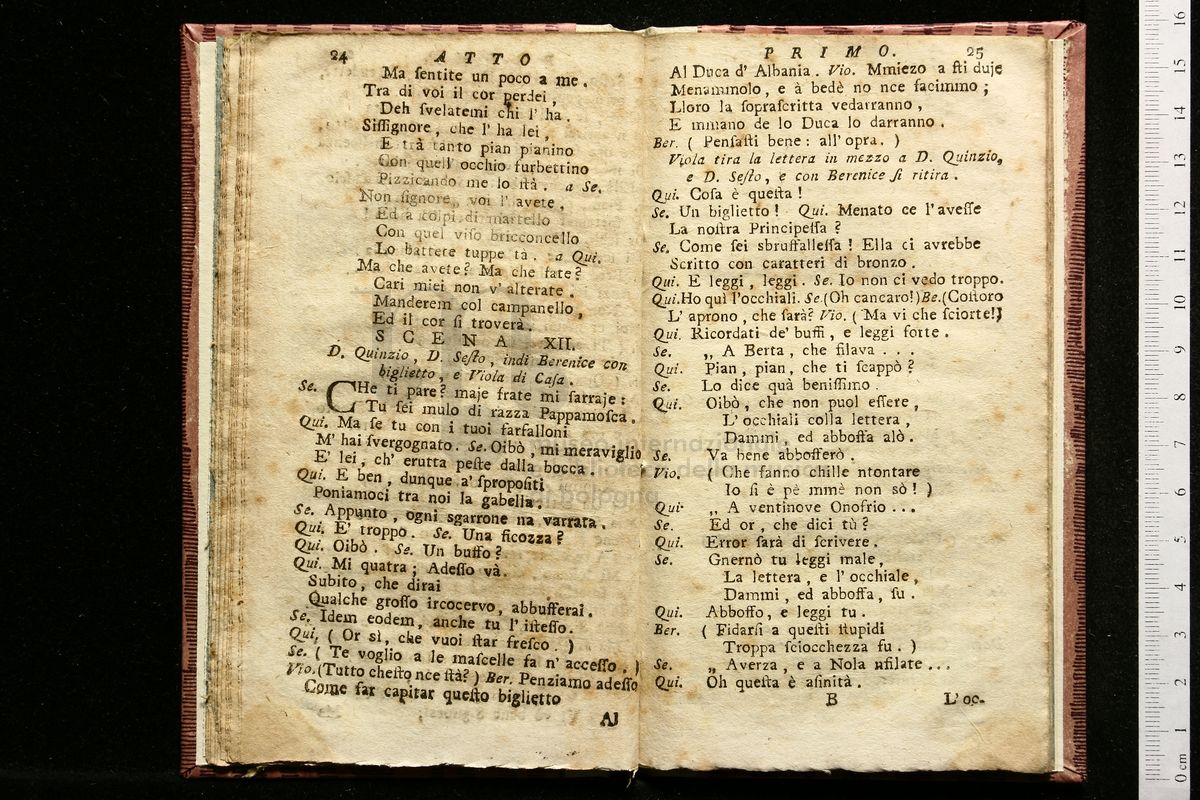 24 ATTO
Ma ſentite un poco a me.
Tra di voi il cor perdei,
Deh ſvelatemi chi l' ha.
Siſſignore, che l' ha lei,
E trà tanto pian pianino
Con quell' occhio furbettino
Pizzicando me lo ſtà. a Se.
Non ſignore, voi l' avete,
Ed a colpi di martello
Con quel viſo bricconcello
Lo battere tuppe tà. a Qui.
Ma che avete? Ma che fate?
Cari miei non v' alterate.
Manderem col campanello,
Ed il cor ſi troverà.
SCENA XII.
D. Quinzio, D. Seſto, indi Berenice con
biglietto, e Viola di Caſa.
Se. CHe ti pare? maje frate mi ſarraje:
Tu ſei mulo di razza Pappamoſca.
Qui. Ma ſe tu con i tuoi farfalloni
M' hai ſvergognato. Se. Oibò, mi meraviglio
E' lei, ch' erutta peſte dalla bocca.
Qui. E ben, dunque a' ſpropoſiti
Poniamoci tra noi la gabella.
Se. Appunto, ogni sgarrone na varrata.
Qui. E' troppo. Se. Una ficozza?
Qui. Oibò. Se. Un buffo?
Qui. Mi quatra; Adeſſo và.
Subito, che dirai
Qualche groſſo ircocervo, abbufferai.
Se. Idem eodem, anche tu l' iſteſſo.
Qui. ( Or sì, che vuoi ſtar freſco. )
Se. ( Te voglio a le maſcelle fa n' acceſſo. )
Vio. (Tutto cheſto nce ſtà?) Ber. Penziamo adeſſo
Come far capitar queſto biglietto
Al
PRIMO. 25
Al Duca d' Albania. Vio. Mmiezo a ſti duje
Menammolo, e à bedè no nce facimmo;
Lloro la ſopraſcritta vedarranno,
E mmano de lo Duca lo darranno.
Ber. ( Penſaſti bene: all' opra. )
Viola tira la lettera in mezzo a D. Quinzio,
e D. Seſto, e con Berenice ſi ritira.
Qui. Coſa è queſta!
Se. Un biglietto! Qui. Menato ce l' aveſſe
La noſtra Principeſſa?
Se. Come ſei sbruffalleſſa! Ella ci avrebbe
Scritto con caratteri di bronzo.
Qui. E leggi, leggi. Se. Io non ci vedo troppo.
Qui. Ho quì l'occhiali. Se. (Oh cancaro!) Be. (Coſtoro
L' aprono, che ſarà? Vio. ( Ma vi che ſciorte!)
Qui. Ricordati de' buffi, e leggi forte.
Se. „ A Berta, che filava ...
Qui. Pian, pian, che ti ſcappò?
Se. Lo dice quà beniſſimo.
Qui. Oibò, che non puol eſſere,
L' occhiali colla lettera,
Dammi, ed abboſſa alò.
Se. Va bene abboſſerò.
Vio. ( Che fanno chille ntontare
Io ſi è pè mmè non sò! )
Qui. „ A ventinove Onofrio ...
Se. Ed or, che dici tù?
Qui. Error ſarà di ſcrivere.
Se. Gnernò tu leggi male,
La lettera, e l' occhiale,
Dammi, ed abboſſa, ſu.
Qui. Abboffo, e leggi tu.
Ber. ( Fidarſi a queſti ſtupidi
Troppa ſciocchezza fu. )
Se. „ Averza, e a Nola nfilate ...
Qui. Oh queſta è aſinità.
B L' oc-